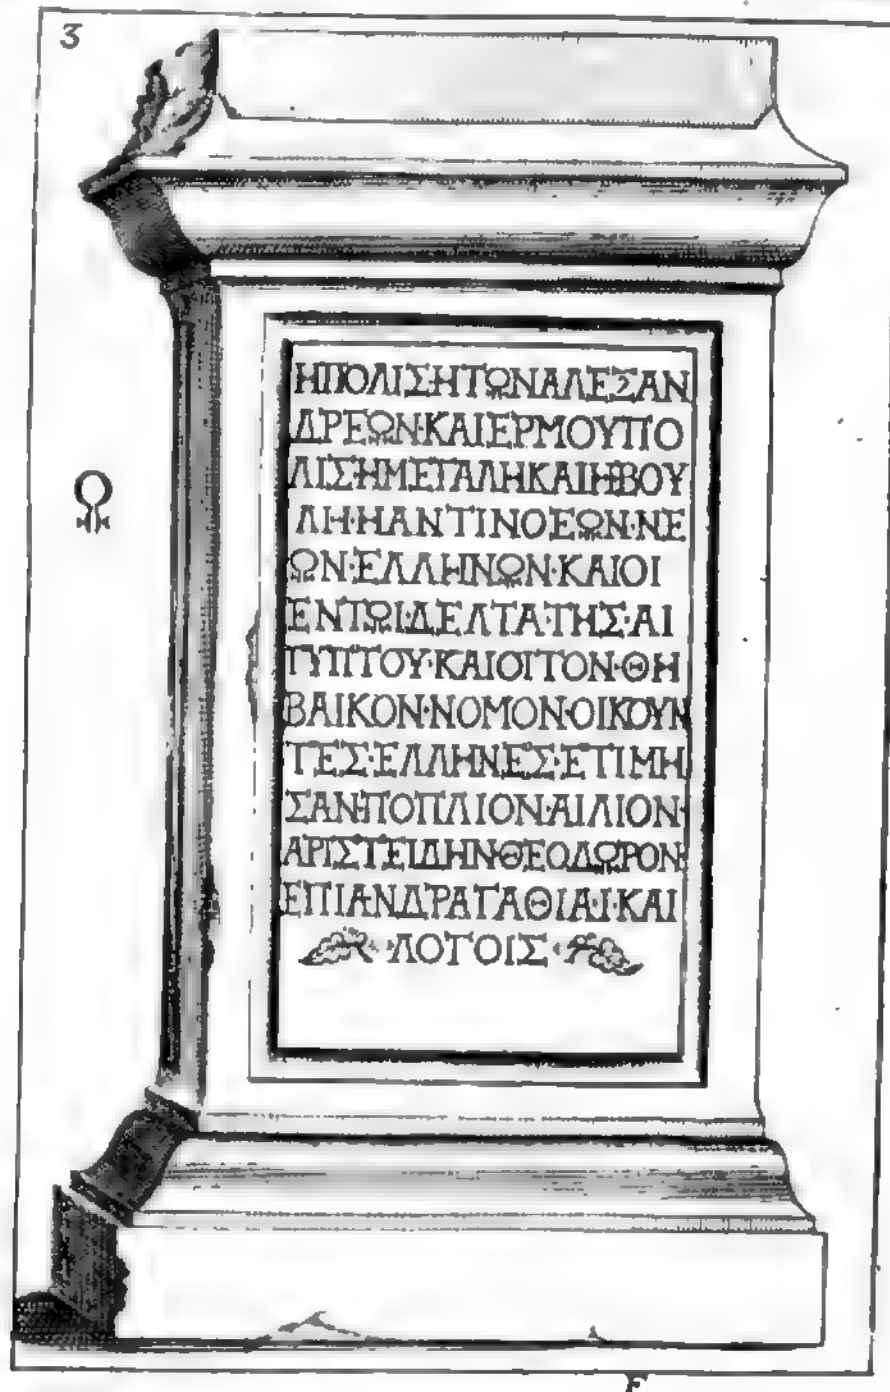 3
ΗΠΟΛΙΣΗΤΩΝΑΛΕΞΑΝ
ΔΡΕΩΝ·ΚΑΙΕΡΜΟΥΠΟ
ΛΙΣ·ΗΜΕΓΑΛΗΚΑΙΗΒΟΥ
ΛΗ·ΗΑΝΤΙΝΟΕΩΝ·ΝΕ
ΩΝ·ΕΛΛΗΝΩΝ·ΚΑΙΟΙ
ΕΝΤΩΙ·ΔΕΛΤΑ·ΤΗΣ·ΑΙ
ΓΥΠΤΟΥ·ΚΑΙΟΙΤΟΝ·ΘΗ
ΒΑΙΚΟΝ·ΝΟΜΟΝ·ΟΙΚΟΥΝ
ΤΕΣ·ΕΛΛΗΝΕΣ·ΕΤΙΜΗ
ΣΑΝ·ΠΟΠΛΙΟΝ·ΑΙΛΙΟΝ·
ΑΡΙΣΤΕΙΔΗΝ·ΘΕΟΔΩΡΟΝ·
ΕΠΙΑΝΔΡΑΓΑΘΙΑ·Ι·ΚΑΙ
·ΛΟΓΟΙΣ·
F